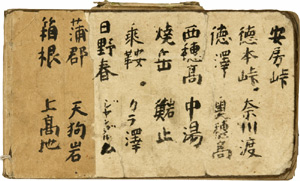 安房峠
徳本峠 奈川渡
徳澤 奥穂高
西穂高 中湯
焼岳 鍋止
乗鞍 クラ澤
日野春
蒲郡 天狗岩
箱根 上高地